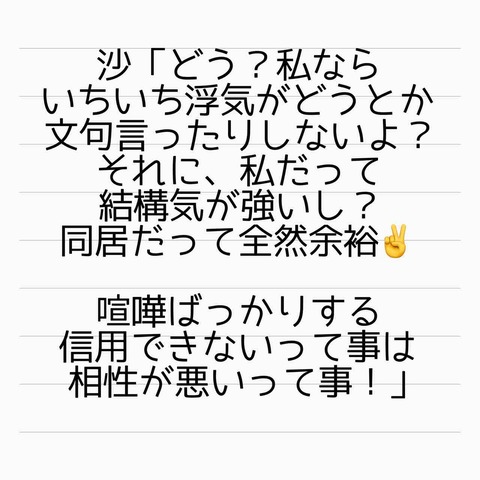 沙「どう？私なら
いちいち浮気がどうとか
文句言ったりしないよ？
それに、私だって
結構気が強いし？
同居だって全然余裕✌
喧嘩ばっかりする
信用できないって事は
相性が悪いって事！」